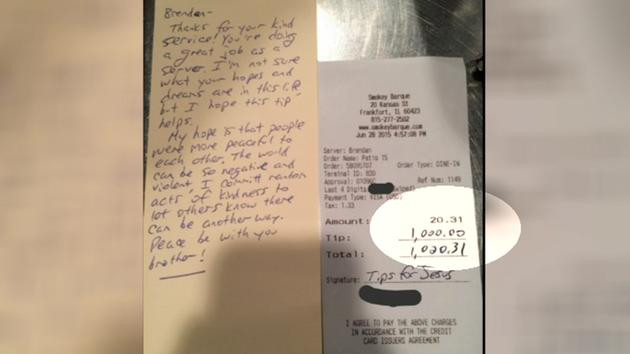 Brendan-
Thanks for your kind
service! You're doing
a great job as a
server. I'm not sure
what your hopes and
dreams are in this life
but I hope this tip
helps.
My hope is that people
were more peaceful to
each other. The world
can be so negative and
violent I committ random
acts of kindness to
let others know there
can be another way.
Peace be with you
brother!
Smokey Barque
20 Kansas St
Frankfort, IL 60423
815-277-2502
www.smokeybarque.com
Jun 28 2015 4:57:08 PM
Server: Brendan
Order Name: Patio 15
Order: Order Type: DINE-IN
Terminal ID: 830
Approval: Ref Num: 1149
Last 4 Digits (Swiped)
Payment Type: VISA
Tax: 1.33
Amount: 20.31
Tip: 1,000.00
Total: 1,020.31
Signature: Tips for Jesus
I AGREE TO PAY THE ABOVE CHARGES
IN ACCORDANCE WITH THE CREDIT
CARD ISSUERS AGREEMENT